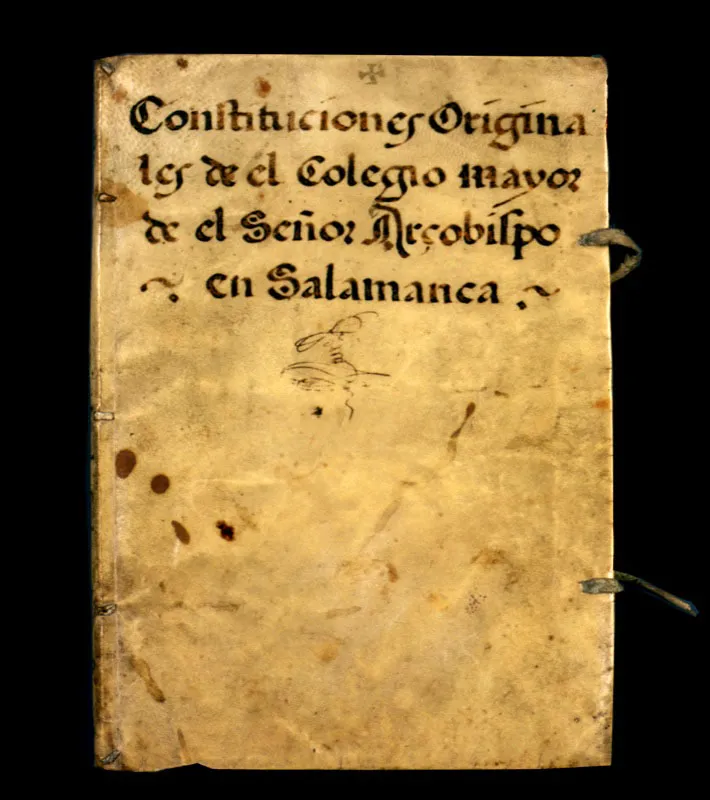 Constituciones Origina
les de el Colegio Mayor
de el Señor Arçobispo
en Salamanca